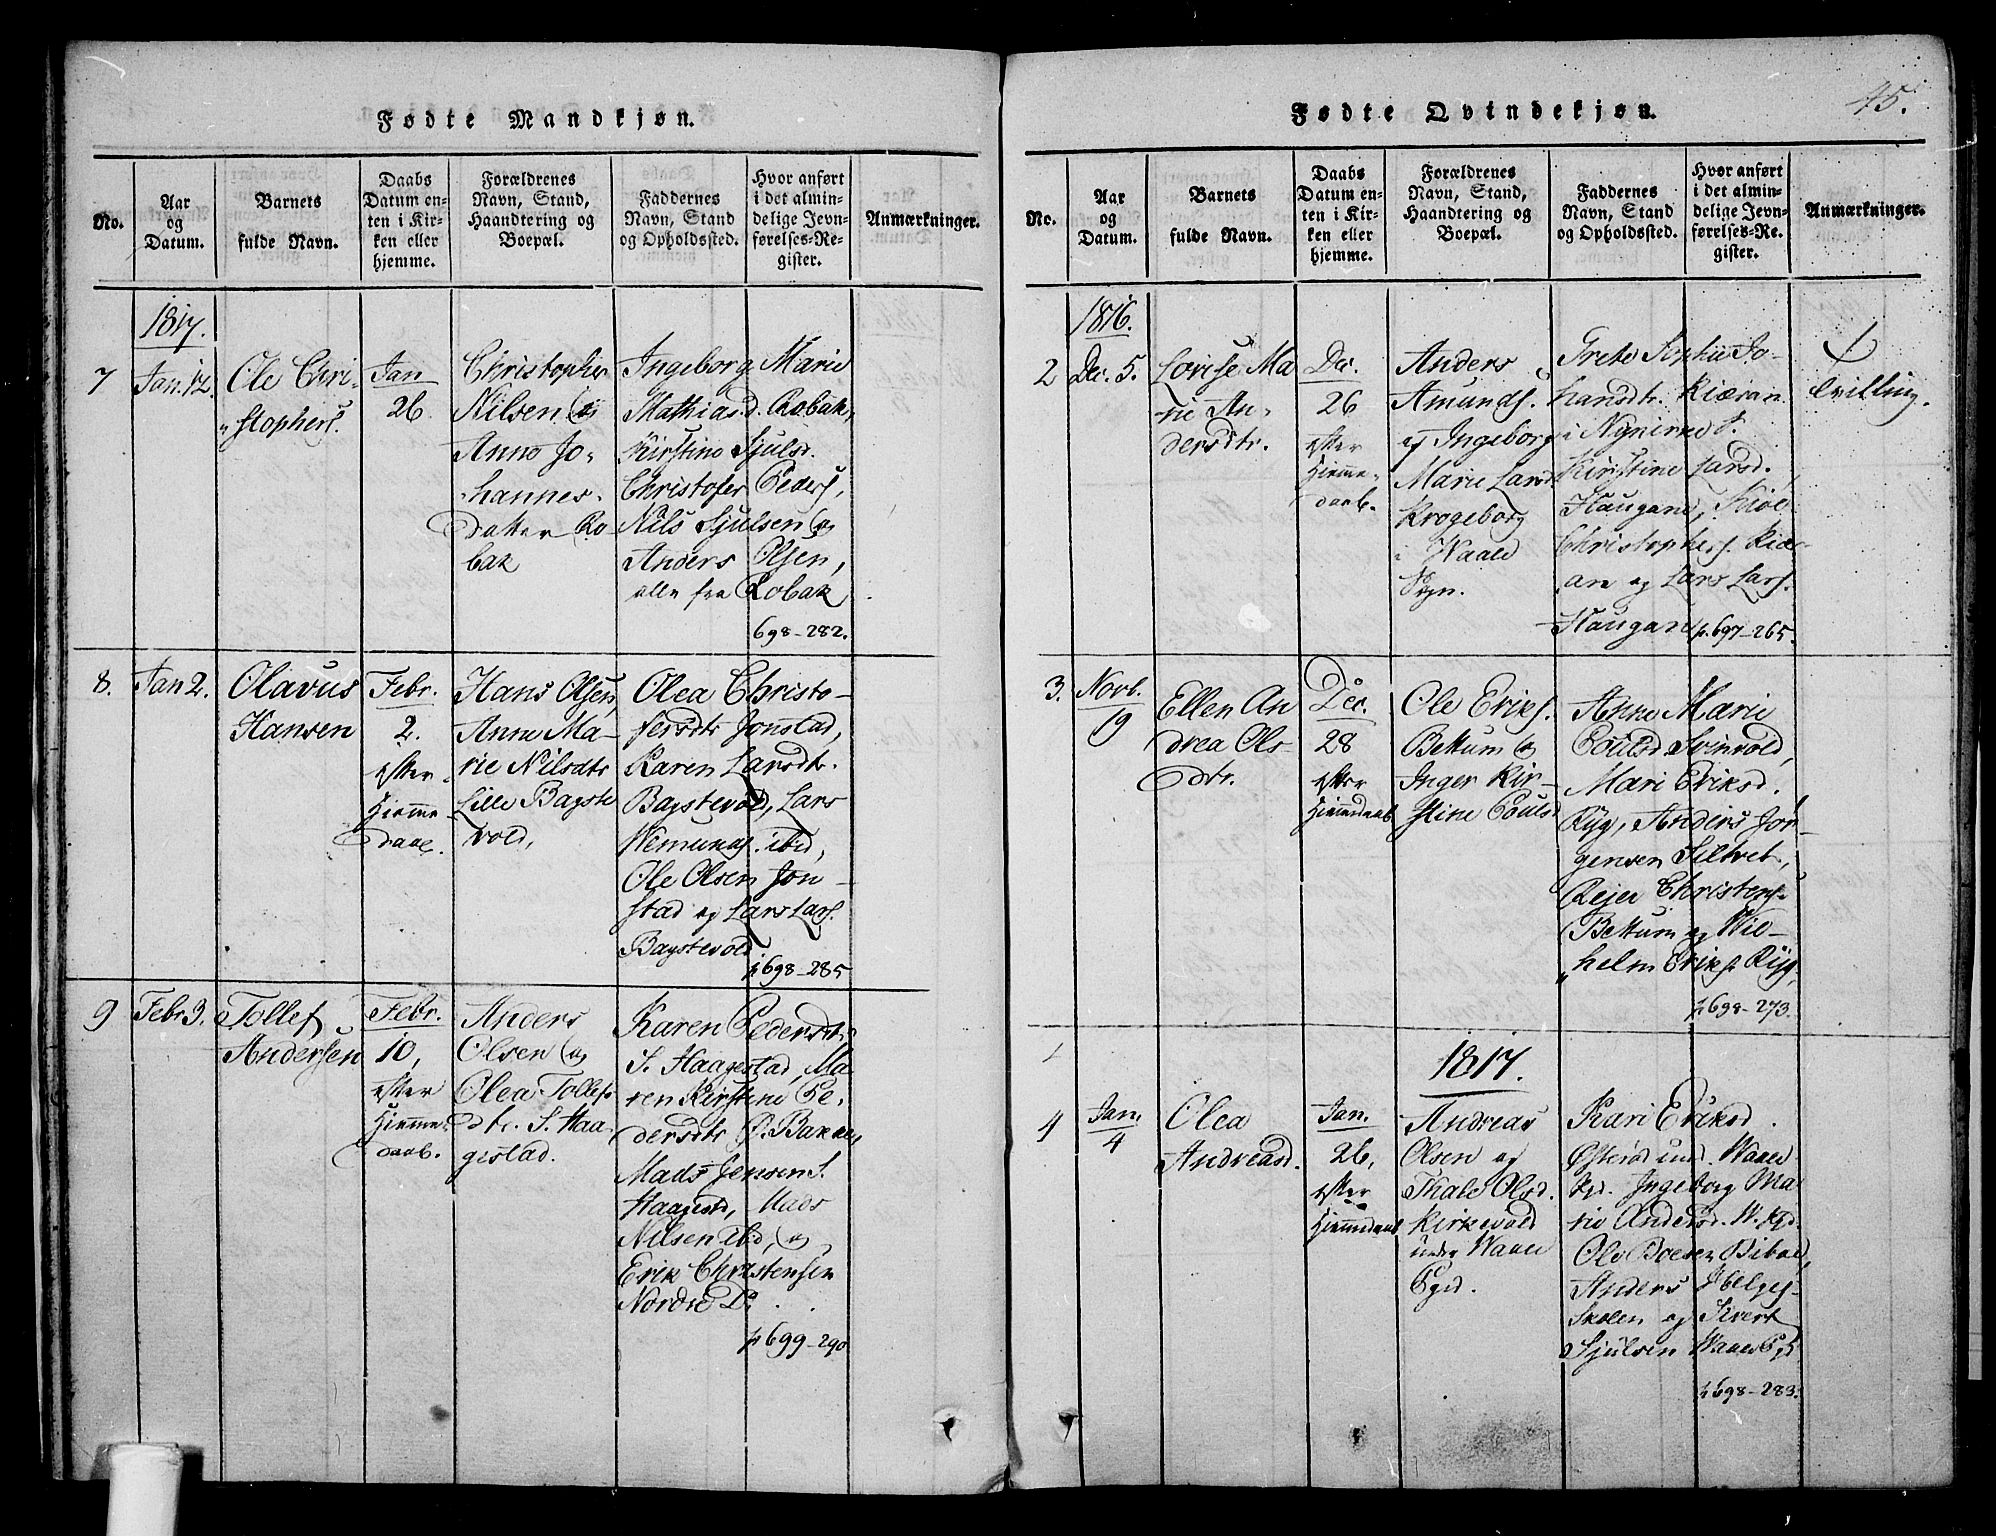 45.
Fødte Mandkjøn.
No.
Aar
og
Datum.
Barnets
fulde Navn.
Daabs
Datum en-
ten i Kir-
ken eller
hjemme.
Forældrenes
Navn, Stand,
Haandtering og
Boepæl.
Faddernes
Navn, Stand
og Opholdssted.
Hvor anført
i det almin-
delige Jevn-
førelses-Re-
gister.
Anmærkninger.
1817.
7
Jan. 12.
Ole Chri-
stophers.
Jan
26.
Christopher
Nilsen og
Anne Jo-
hannes-
datter Ro-
bak
Ingeborg Marie
Mathiasd. Robak,
Kirstine Sjulsd.
Christofer Peders.
Nils Sjulsen og
Anders Olsen,
alle fra Robak
698-282.
8.
Jan 2.
Olavus
Hansen
Febr.
2.
efter
Hjemme
daab.
Hans Olsen,
Anne Ma-
rie Nilsdtr
Lille Bayste
vold,
Olea Christo-
fersdtr Jonstad,
Karen Larsdtr.
Baystevold, Lars
ibid,
Ole Olsen Jon-
stad og Lars Lars.
Baystevold
p 698-285
9
Febr 3.
Tollef
Andersen
Febr.
10,
efter
Hjemme-
daab.
Anders
Olsen og
Olea Tollefs
dtr. S. Haa-
gestad.
Karen Pedersdtr
S. Haagestad, Ma-
ren Kirstine Pe-
dersdtr P. Bakke,
Mads Jensen S.
Haagestd, Mads
Nilsen ibid, og
Erik Christensen
Nordre Do.
p 699-290
Fødte Qvindekjøn.
No.
Aar
og
Datum.
Barnets
fulde Navn.
Daabs
Datum en-
ten i Kir-
ken eller
hjemme.
Forældrenes
Navn, Stand,
Haandtering og
Boepæl.
Faddernes
Navn, Stand
og Opholdssted.
Hvor anført
i det almin-
delige Jevn-
førelses-Re-
gister.
Anmærkninger.
1816.
2
Dec. 5.
Lovise Ma
rie An-
dersdtr.
Dec.
26
efter
Hjemme-
daab.
Anders
Amunds.
og Ingeborg
Marie Larsd
Krogeborg
i Waale
Sogn.
Grete Sophie Jo-
hansdtr. Kiæran
i
Kirstine Larsd.
Haugane,
Christophers. Kiær-
an og Lars Lars.
Haugan p. 697-265.
tvilling.
3.
Novb.
19
Ellen An
drea Ols-
dtr.
Dec.
28
efter
Hjemmdaab
Ole Eriks.
Bettum og
Inger Kir-
stine Poulsd
Anne Marie
Poulsd Svinvold,
Mari Eriksd.
Ryg, Anders Jør-
gensen Siltvet,
Rejer Christens.
Bettum og Wil-
helm Eriks. Ryg,
p 698-273.
1817.
4
Jan.
4
Olea
Andreasd.
Jan.
26,
efter
Hjemmdaab
Andreas
Olsen og
Thale Olsd.
Kirkevold
under Waale
Pgd.
Kari Eriksd.
Østerød und. Waale
Pgd. Ingeborg Ma-
rie Andersd. W. Pgd.
Ole Boesen
Anders Helges-
skolen og Sivert
Sjulsen Waale Pgd
p 698-283.